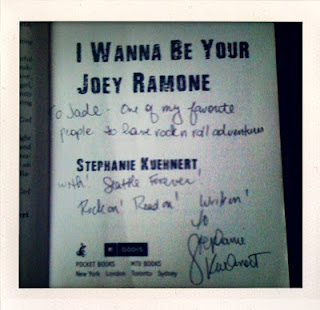 I WANNA BE YOUR
JOEY RAMONE
To Jade - One of my favorite
people to have rock n roll adventures
STEPHANIE KUEHNERT
with! Seattle Forever!
Rock on! Read on! Write on!
xo
Stephanie
Kuehnert
MTV BOOKS
POCKET BOOKS MTV BOOKS
New York London Toronto Sydney